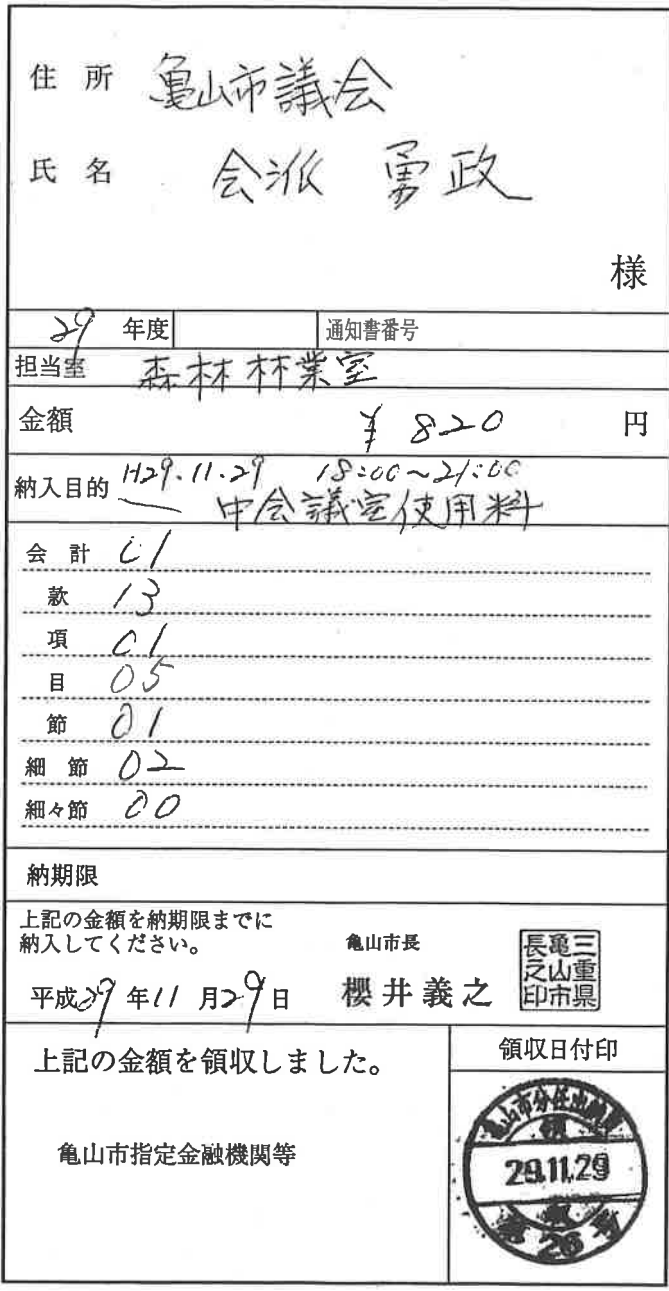 住所 亀山市議会
氏名 会派 勇政
様
29 年度 通知書番号
担当室 森林林業室
金額 ¥820 円
納入目的 H29.11.29 18:00~21:00
中会議室使用料
会計 01
款 13
項 01
目 05
節 01
細節 02
細々節 00
納期限
上記の金額を納期限までに
納入してください。
亀山市長
平成29年11月29日 櫻井義之
三重県
亀山市
長之印
上記の金額を領収しました。
領収日付印
亀山市指定金融機関等
亀山市分任出納員
領
29.11.29
26